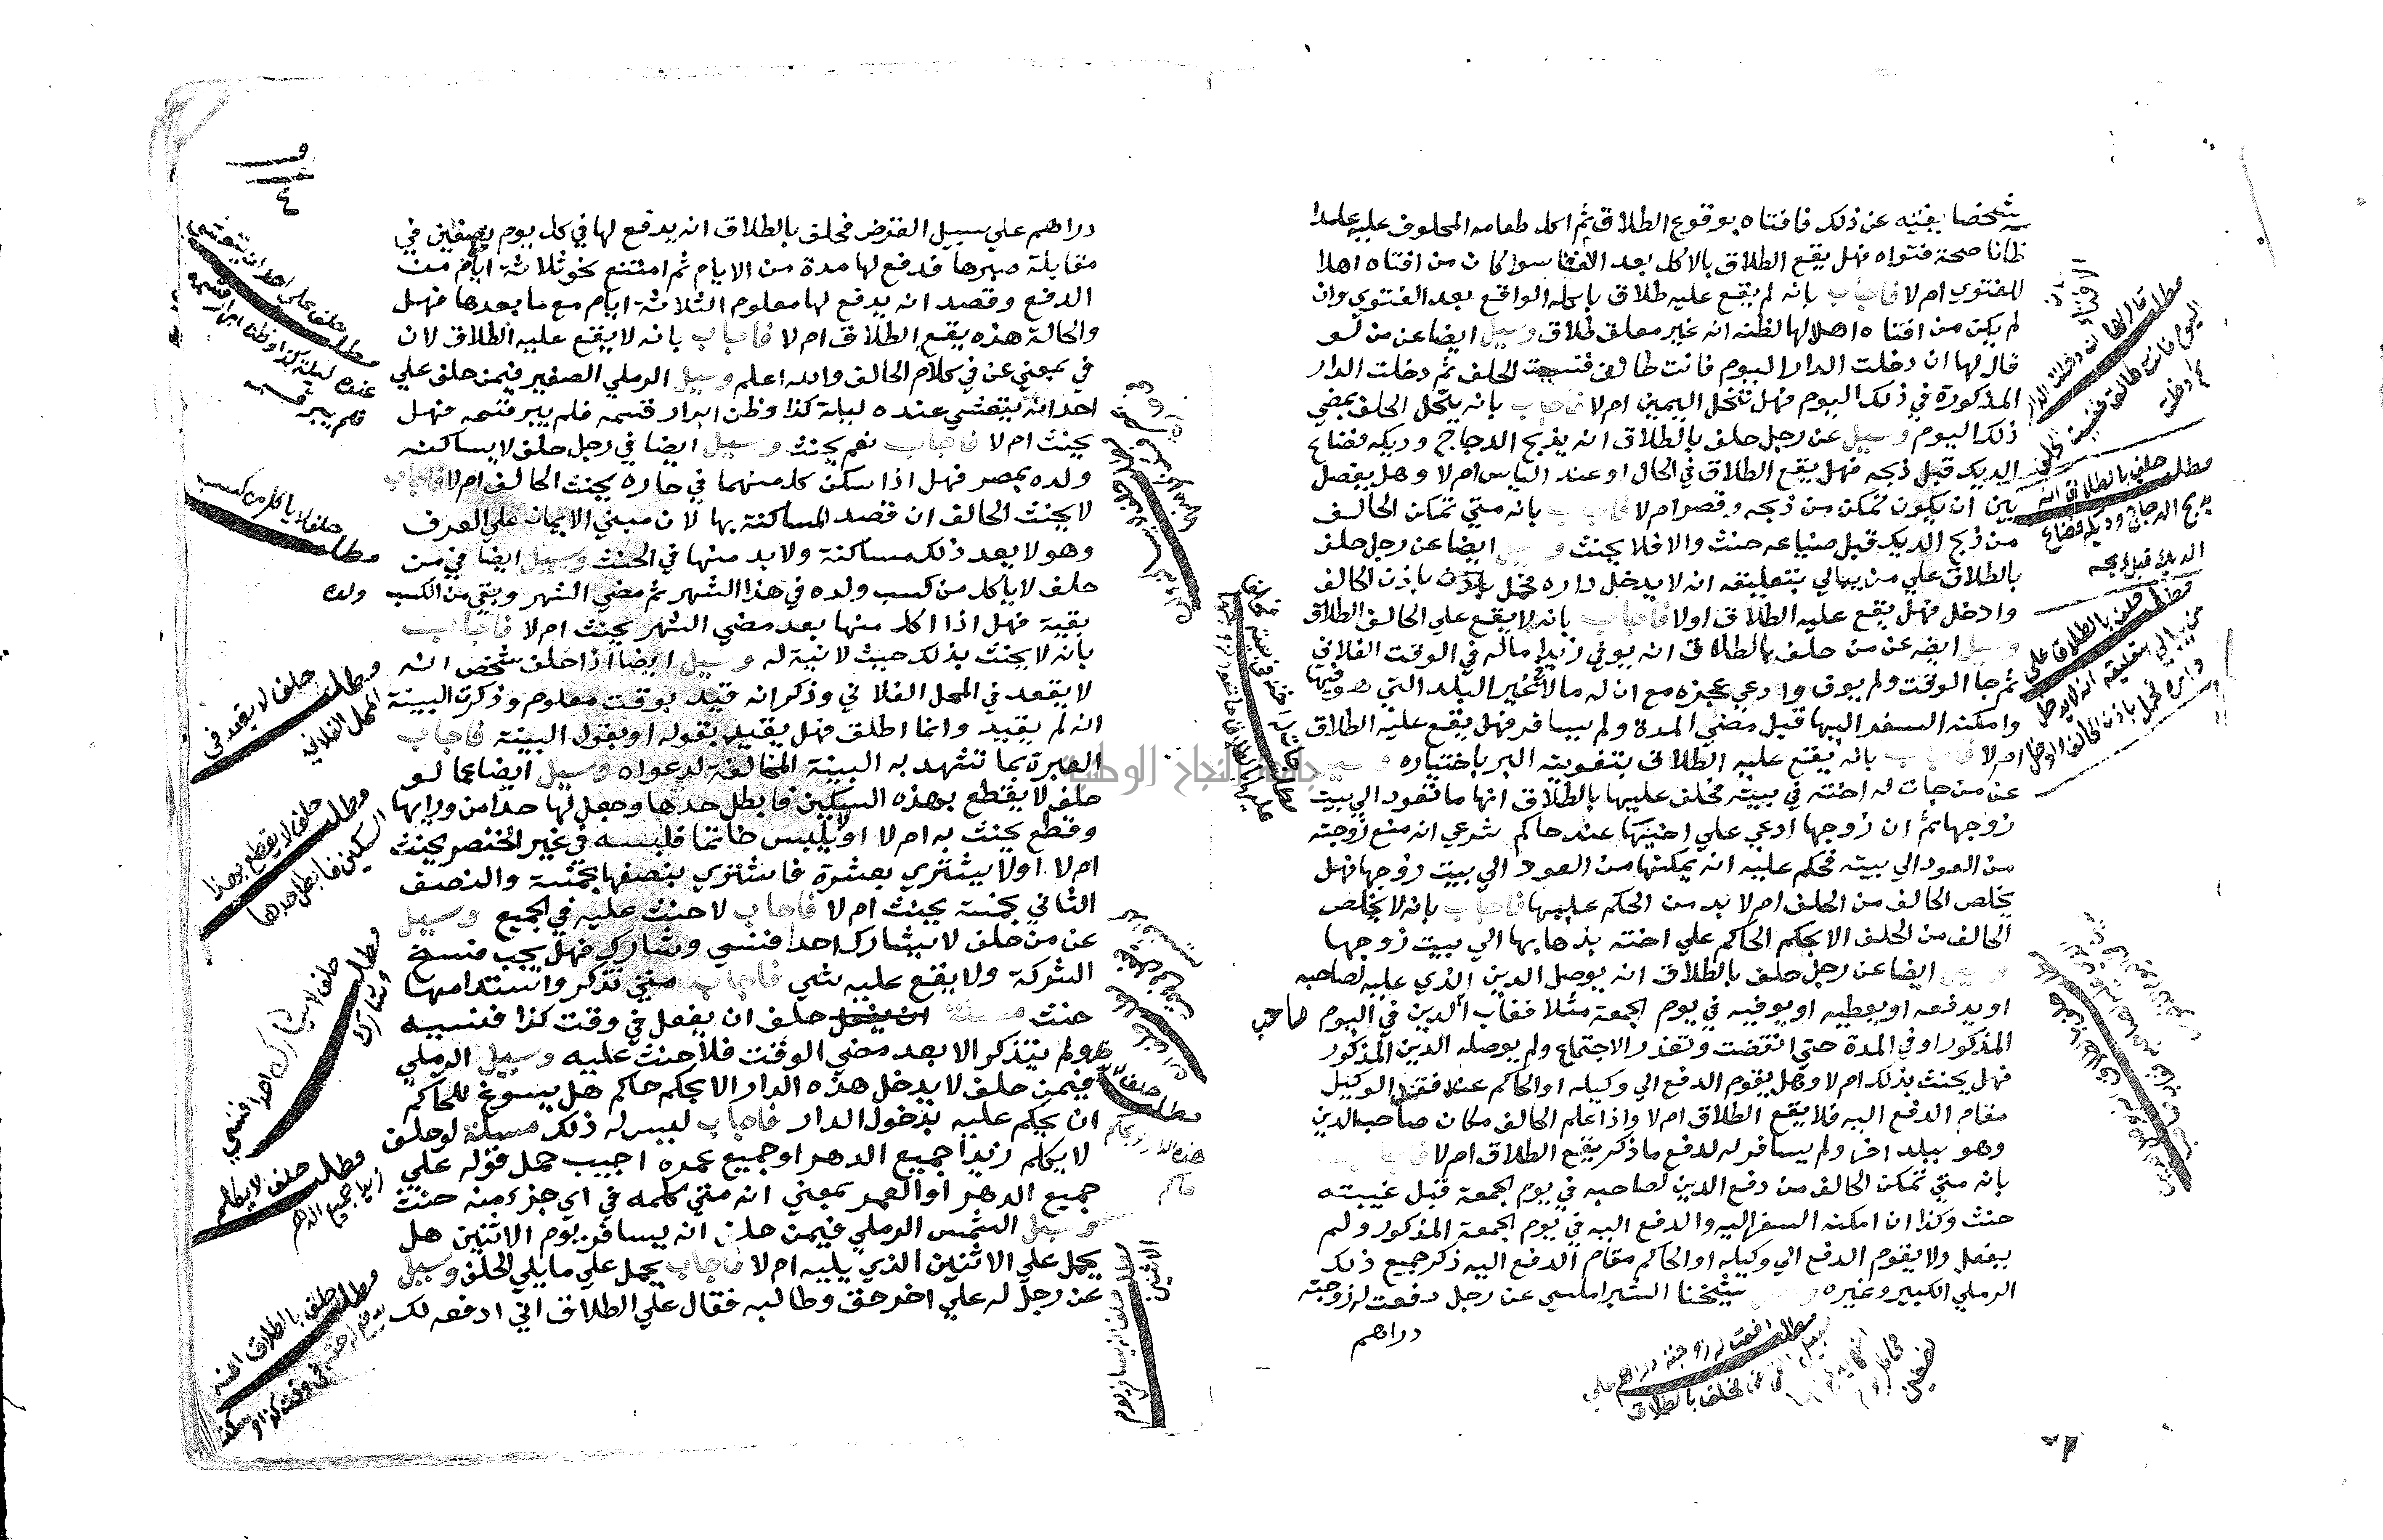 شخصا يفتيه عن ذلك فافتاه بوقوع الطلاق ثم اكل طعامه المحلوف عليه عامدا
ظانا صحة فتواه فهل يقع الطلاق بالاكل بعد الافتا سوا كان من افتاه اهلا
للفتوي ام لا فاجاب بانه لم يقع عليه طلاق باكله الواقع بعد الفتوي وان
لم يكن من افتاه اهلا لها لظنه انه غير معلق طلاق وسيل ايضا عن من لو
قال لها ان دخلت الدار اليوم فانت طالق فنسيت الحلف ثم دخلت الدار
المذكورة في ذلك اليوم فهل تنحل اليمين ام لا فاجاب بانه ينحل الحلف بمضي
ذلك اليوم وسيل عن رجل حلف بالطلاق انه يذبح الدجاج وديكه فضاع
الديك قبل ذبحه فهل يقع الطلاق في الحال او عند الياس ام لا وهل يفصل
بين ان يكون تمكن من ذبحه وقصر ام لا فاجاب بانه متي تمكن الحالف
من ذبح الديك قبل ضياعه حنث والا فلا يحنث وسيل ايضا عن رجل حلف
بالطلاق علي من يبالي بتعليقه انه لا يدخل داره فحمل باذن الحالف
وادخل فهل يقع عليه الطلاق او لا فاجاب بانه لا يقع علي الحالف الطلاق
وسيل ايضا عن من حلف بالطلاق انه يوفي زيدا ماله في الوقت الفلاني
ثم جا الوقت ولم يوف وادعي عجزه مع ان له مالا في غير البلد التي هو فيها
وامكنه السفر اليها قبل مضي المدة ولم يسافر فهل يقع عليه الطلاق
ام لا فاجاب بانه يقع عليه الطلاق بتفويته البر باختياره وسيل
عن من جات له اخته في بيته فحلف عليها بالطلاق انها ما تعود الي بيت
زوجها ثم ان زوجها ادعي علي اخيها عند حاكم شرعي انه منع زوجته
من العود الي بيته فحكم عليه انه يمكنها من العود الي بيت زوجها فهل
يخلص الحالف من الحلف ام لا بد من الحكم عليها فاجاب بانه لا يخلص
الحالف من الحلف الا بحكم الحاكم علي اخته بذهابها الي بيت زوجها
وسيل ايضا عن رجل حلف بالطلاق انه يوصل الدين الذي عليه لصاحبه
او يدفعه او يعطيه او يوفيه في يوم الجمعة مثلا فغاب الدين في اليوم صاحب
المذكور او في المدة حتي انقضت وتعذر الاجتماع ولم يوصله الدين المذكور
فهل يحنث بذلك ام لا وهل يقوم الدفع الي وكيله او الحاكم عند فقد الوكيل
مقام الدفع اليه فلا يقع الطلاق ام لا واذا علم الحالف مكان صاحب الدين
وهو ببلد اخر ولم يسافر له لدفع ما ذكر يقع الطلاق ام لا فاجاب
بانه متي تمكن الحالف من دفع الدين لصاحبه في يوم الجمعة قبل غيبته
حنث وكذا ان امكنه السفر اليه والدفع اليه في يوم الجمعة المذكور ولم
يفعل ولا يقوم الدفع الي وكيله او الحاكم مقام الدفع اليه ذكر جميع ذلك
الرملي الكبير وغيره وسيل شيخنا الشبراملسي عن رجل دفعت له زوجته
دراهم
مطلب قال لها ان دخلت الدار
اليوم فانت طالق فنسيت الحلف
ثم دخلت
مطلب حلف بالطلاق انه
يذبح الدجاج وديكه فضاع
الديك قبل ذبحه
مطلب حلف بالطلاق علي
من يبالي بتعليقه انه لا يدخل
داره فحمل باذن الحالف وادخل
مطلب دفعت له زوجته دراهم علي
فحلف بالطلاق
دراهم علي سبيل القرض فحلف بالطلاق انه يدفع لها في كل يوم نصفين في
مقابلة صبرها فدفع لها مدة من الايام ثم امتنع نحو ثلاثة ايام من
الدفع وقصد ان يدفع لها معلوم الثلاثة ايام مع ما بعدها فهل
والحالة هذه يقع الطلاق ام لا فاجاب بانه لا يقع عليه الطلاق لان
في بمعني عن في كلام الحالف والله اعلم وسيل الرملي الصغير فيمن حلف علي
احد انه يتعشي عنده ليلة كذا وظن ابرار قسمه فلم يبر قسمه فهل
يحنث ام لا فاجاب نعم يحنث وسيل ايضا في رجل حلف لا يساكنه
ولده بمصر فهل اذا سكن كل منهما في حاره يحنث الحالف ام لا فاجاب
لا يحنث الحالف ان قصد المساكنة بها لان مبني الايمان علي العرف
وهو لا يعد ذلك مساكنة ولا بد منها في الحنث وسيل ايضا في من
حلف لا ياكل من كسب ولده في هذا الشهر ثم مضي الشهر وبقي من الكسب
بقية فهل اذا اكل منها بعد مضي الشهر يحنث ام لا فاجاب
بانه لا يحنث بذلك حيث لا نية له وسيل ايضا اذا حلف شخص انه
لا يقعد في المحل الفلاني وذكر انه قيد بوقت معلوم وذكرت البينة
انه لم يقيد وانما اطلق فهل يقيد بقوله او بقول البينة فاجاب
العبرة بما تشهد به البينة المخالفة لدعواه وسيل ايضا عما لو
حلف لا يقطع بهذه السكين فابطل حدها وجعل لها حدا من ورايها
وقطع يحنث به ام لا او لا يلبس خاتما فلبسه في غير الخنصر يحنث
ام لا او لا يشتري بعشرة فاشتري بنصفها بخمسة والنصف
الثاني بخمسة يحنث ام لا فاجاب لا حنث عليه في الجميع وسيل
عن من حلف لا يشارك احدا فنسي وشارك فهل يجب فسخ
الشركة ولا يقع عليه شي فاجاب متي تذكر واستدامها
حنث مسئلة ان يفعل حلف ان يفعل في وقت كذا فنسيه
ولم يتذكر الا بعد مضي الوقت فلا حنث عليه وسيل الرملي
فيمن حلف لا يدخل هذه الدار الا بحكم حاكم هل يسوغ للحاكم
ان يحكم عليه بدخول الدار فاجاب ليس له ذلك مسئلة لو حلف
لا يكلم زيدا جميع الدهر او جميع عمره اجيب حمل قوله علي
جميع الدهر او العمر بمعني انه متي كلمه في اي جزء منه حنث
وسيل الشمس الرملي فيمن حلف انه يسافر يوم الاثنين هل
يحمل علي الاثنين الذي يليه ام لا فاجاب يحمل علي ما يلي الحلف وسيل
عن رجل له علي اخر حق وطالبه فقال علي الطلاق اني ادفعه لك
مطلب حلف علي احد انه يتعشي
عنده ليلة كذا وظن ابرار قسمه
فلم يبر قسمه
مطلب حلف لا ياكل من كسب
ولده
مطلب حلف لا يقعد في
المحل الفلاني
مطلب حلف لا يقطع بهذا
السكين فابطل حدها
مطلب حلف لا يشارك احدا فنسي
وشارك
مطلب حلف لا يكلم
زيدا جميع الدهر
مطلب حلف بالطلاق انه
مطلب حلف لا
هذه الدار الا بحكم
حاكم
مطلب حلف انه يسافر يوم
الاثنين
جامعة النجاح الوطنية